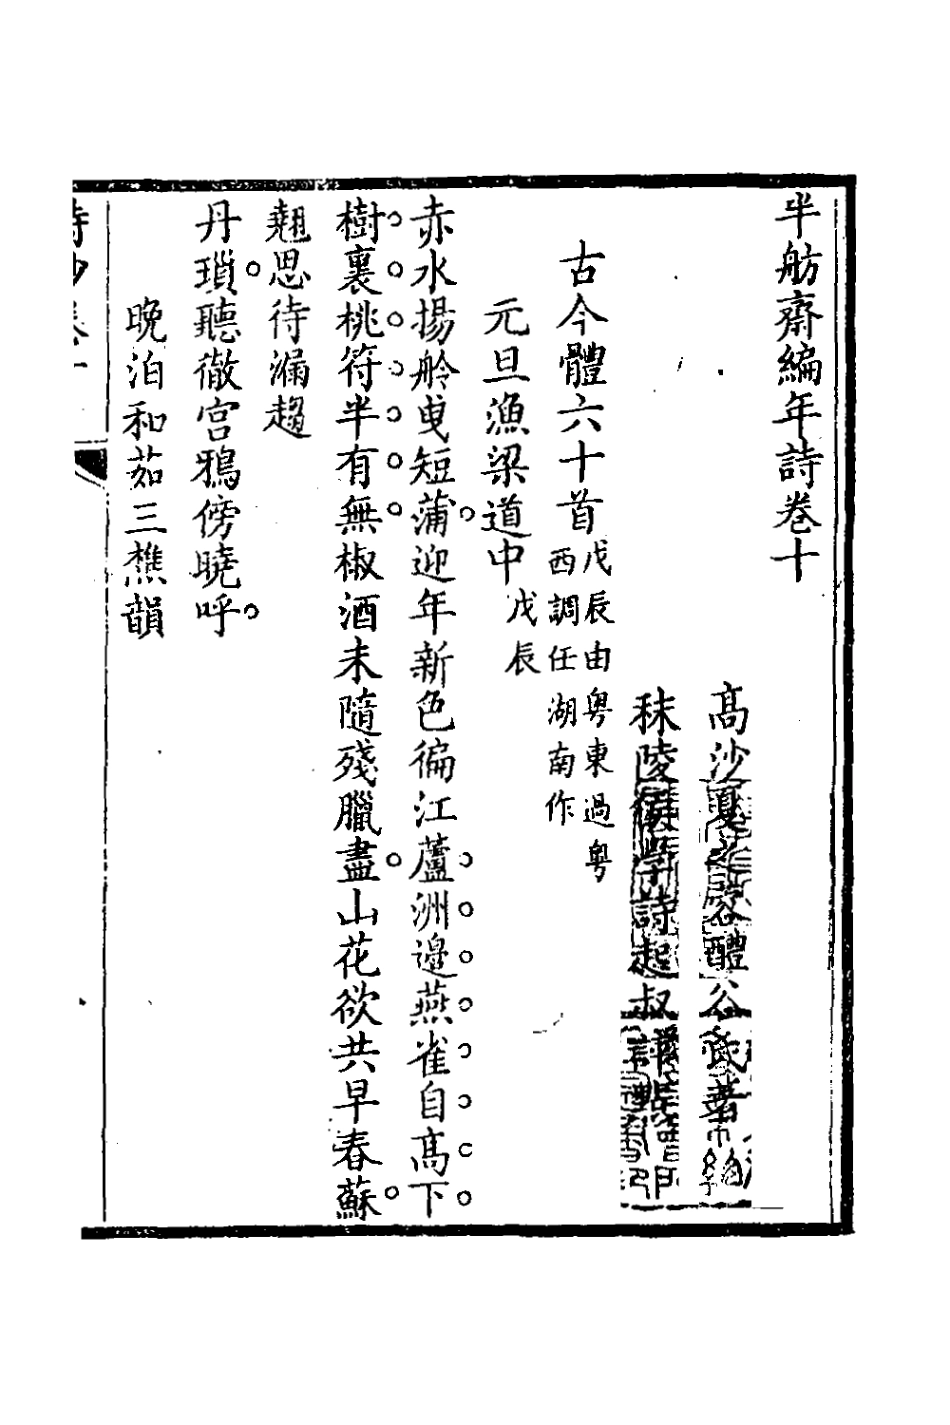 半舫齋編年詩卷十
高沙夏之蓉醴谷氏著
秣陵徐學詩起叔評點
古今體六十首
戊辰由粵東過粵
西調任湖南作
元旦漁梁道中 戊辰
赤水揚舲曳短蒲迎年新色徧江蘆洲邊燕雀自高下
樹裏桃符半有無椒酒未隨殘臘盡山花欲共早春蘇
翹思待漏趨
丹瑣聽徹宮鴉傍曉呼
晚泊和茹三樵韻